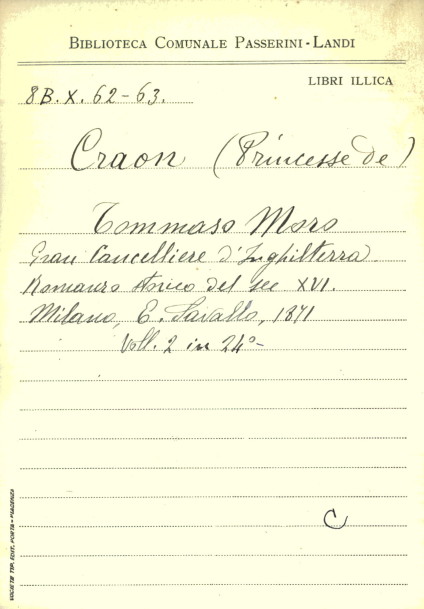 BIBLIOTECA COMUNALE PASSERINI-LANDI
LIBRI ILLICA
8B. X. 62-63.
Craon (Princesse de)
Tommaso Moro
Gran Cancelliere d'Inghilterra
Romanzo storico del sec XVI.
Milano, E. Savallo, 1871
Voll. 2 in 24°-
C
SOCIETÀ TIP. EDIT. PORTA - PIACENZA